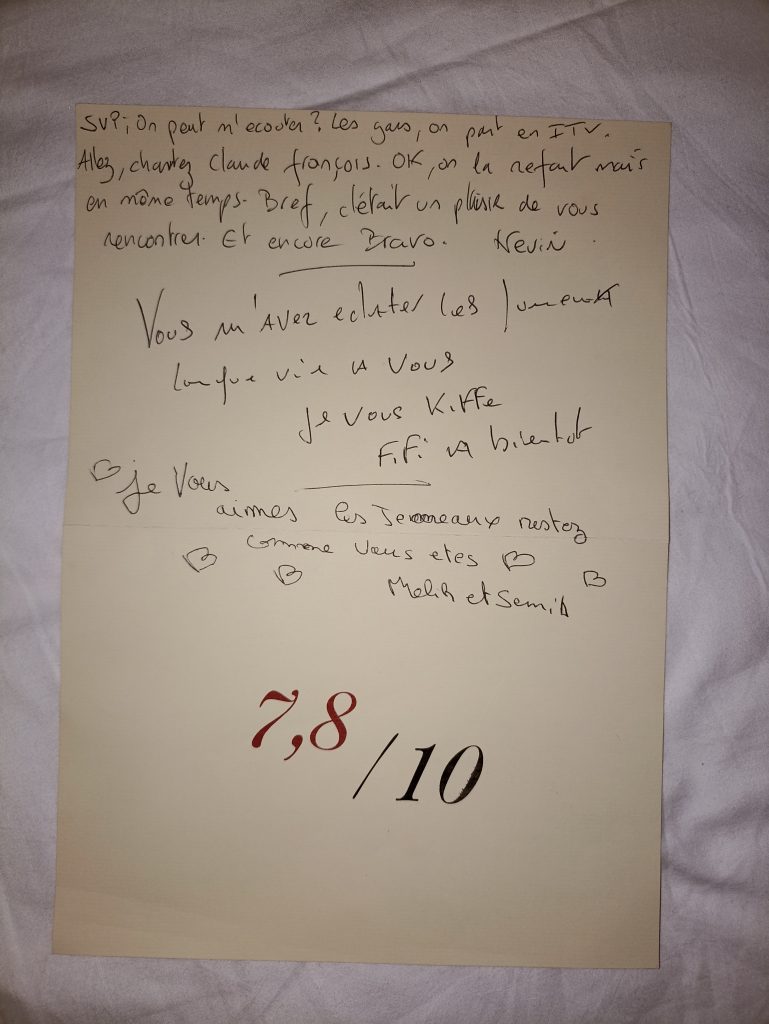 SVP, On peut m'ecouter? Les gars, on part en ITV.
Allez, chantez Claude françois. OK, on la refait mais
en même temps. Bref, c'était un plaisir de vous
rencontrer. Et encore Bravo. Nevin.
Vous m'AVez eclater les Jumeaux
longue vie A Vous
Je vous Kiffe
Fifi A bientot
Je Vous
aimes les Jemeaux restez
comme vous etes
Melih et Semih
7,8/10